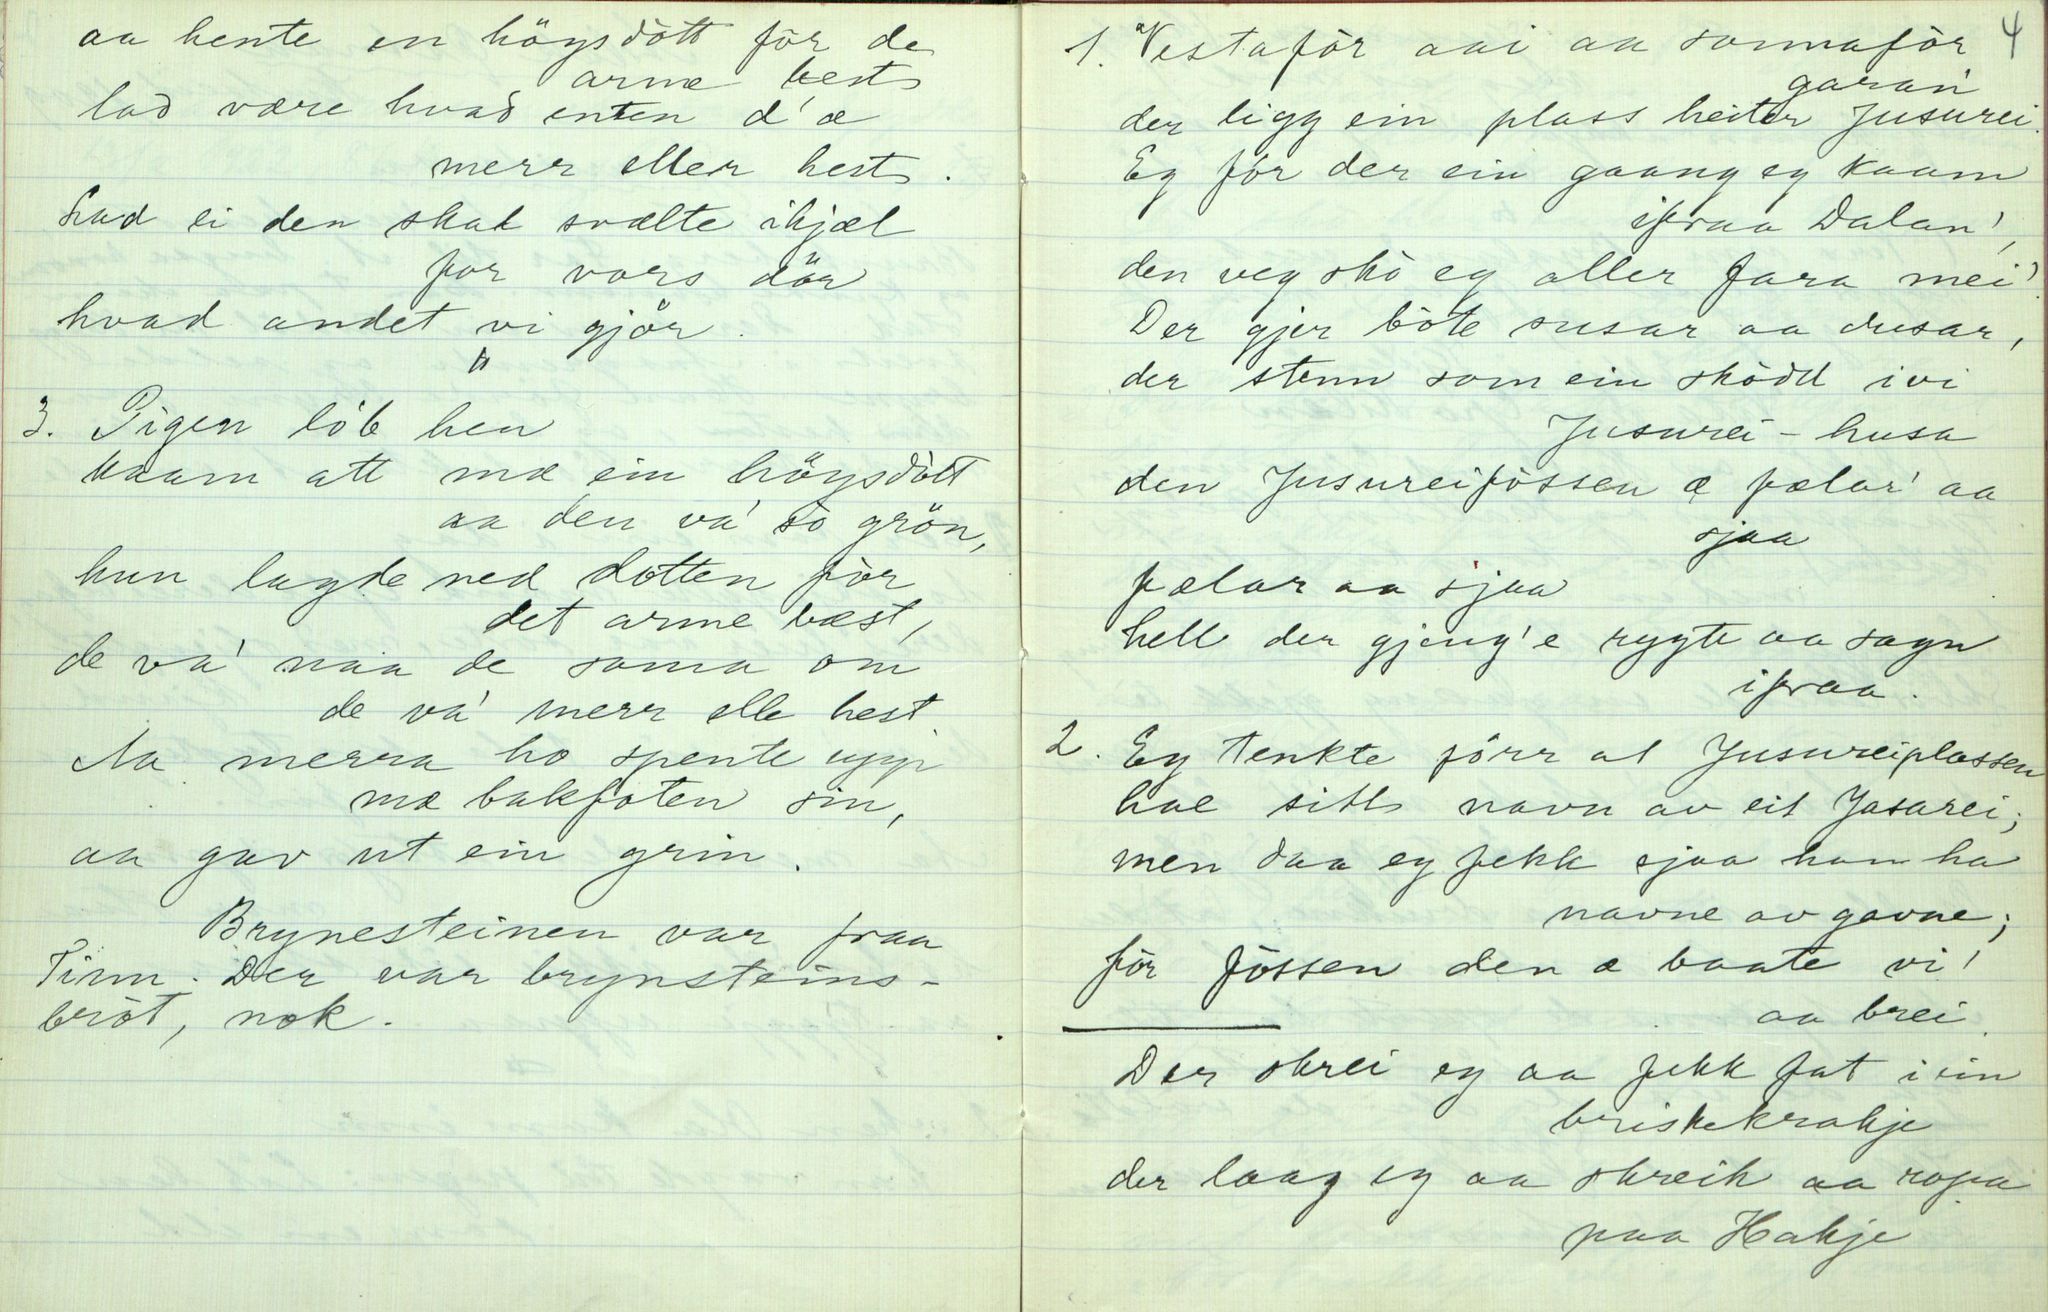 aa hente en höysdòtt för de
arme best
lad være hvad enten d'æ
merr eller hest.
Lad ei den skal svælte ihjæl
for vors dör
hvad andet vi gjör.
"
3. Pigen löb hen
kaam att mæ ein höysdòtt
aa den va' so grön,
hun lagde ned dotten för
det arme bæst,
de va' naa de sama om
de va' merr elle hest
Aa merra ho spente upp
mæ bakfoten sin,
aa gav ut ein grin.
Brynesteinen var fraa
Tinn. Der var brynsteins-
bròt, nok.
4
1. Vestafòr aai aa sonnafòr
garan'
der ligg ein plass heiter Jusurei.
Eg fòr der ein gaang eg kaam
ifraa Dalan',
den veg skò eg aller fara mei'.
Der gjer bòte susar aa dusar,
der stenn som ein skòdd ivi
Jusurei-husa
den Jusureifòssen æ fælar' aa
sjaa
fælar aa sjaa
hell der gjeng'e rygte aa sagn
ifraa.
2. Eg tenkte förr at Jusureiplassen
hae sitt navn av eit Jasarei;
men daa eg fekk sjaa han ha
navne av gavne;
fòr fòssen den æ baate vi'
aa brei.
Der skrei eg aa fekk fat i ein
briskekrakje
der laag eg aa skreik aa ropa
paa Hakje